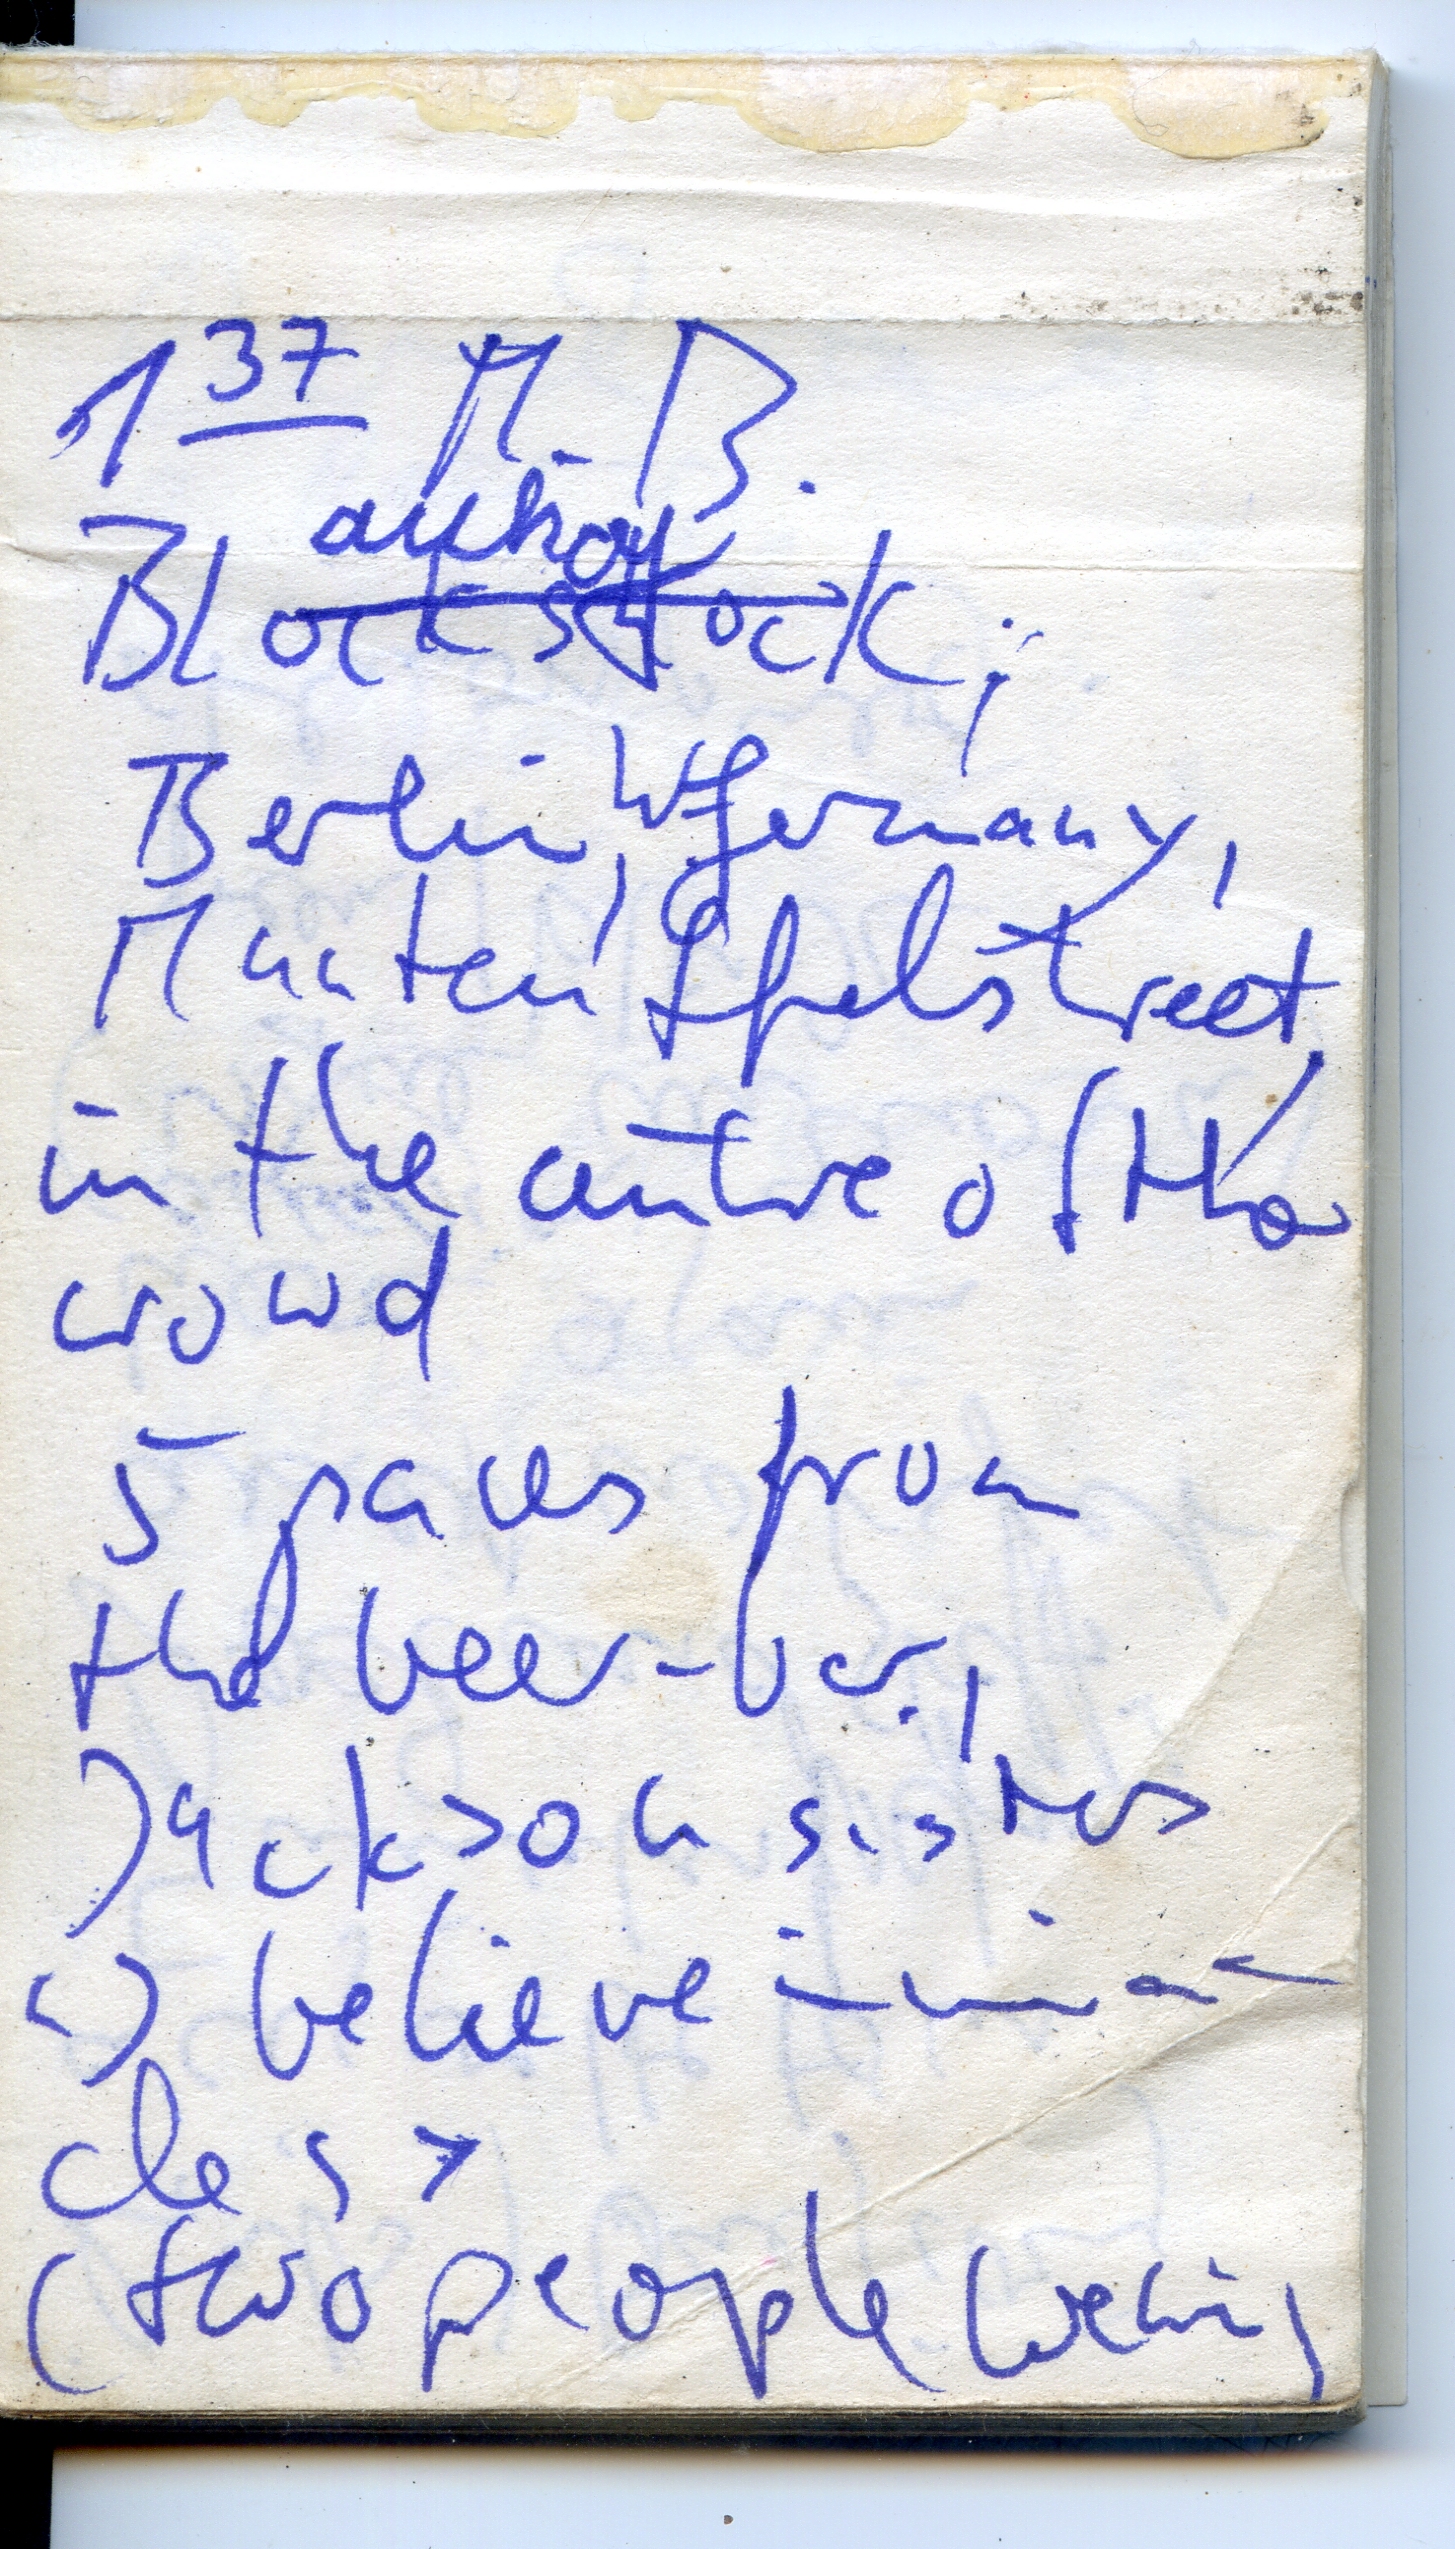 1 37 M. B.
author
Blockstock,
Berlin, W Germany,
Manteuffelstreet,
in the centre of the
crowd
5 paces from
the beer-bar,
Jackson sisters
believe in mira-
cles >
(two people being